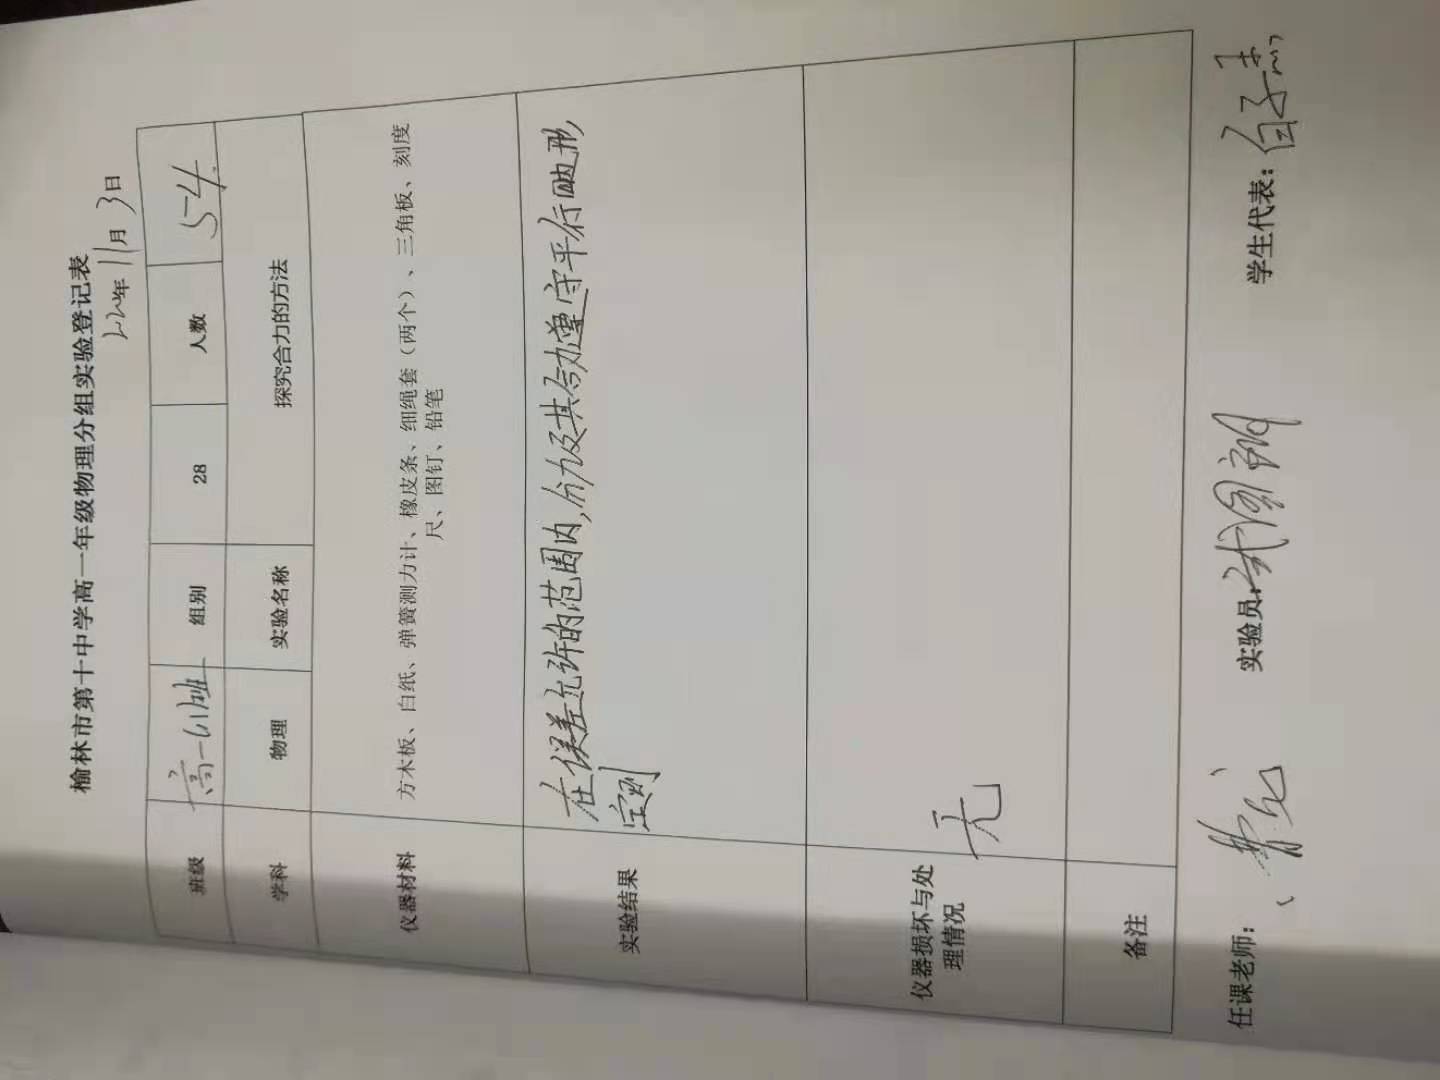 榆林市第十中学高一年级物理分组实验登记表
22年11月3日
班级 高一(1)班 组别 28 人数 54
学科 物理 实验名称 探究合力的方法
仪器材料 方木板、白纸、弹簧测力计、橡皮条、细绳套（两个）、三角板、刻度
尺、图钉、铅笔
实验结果 在误差允许的范围内,分力及其合力遵守平行四边形
定则
仪器损坏与处
理情况
无
备注
任课老师： 实验员： 学生代表：